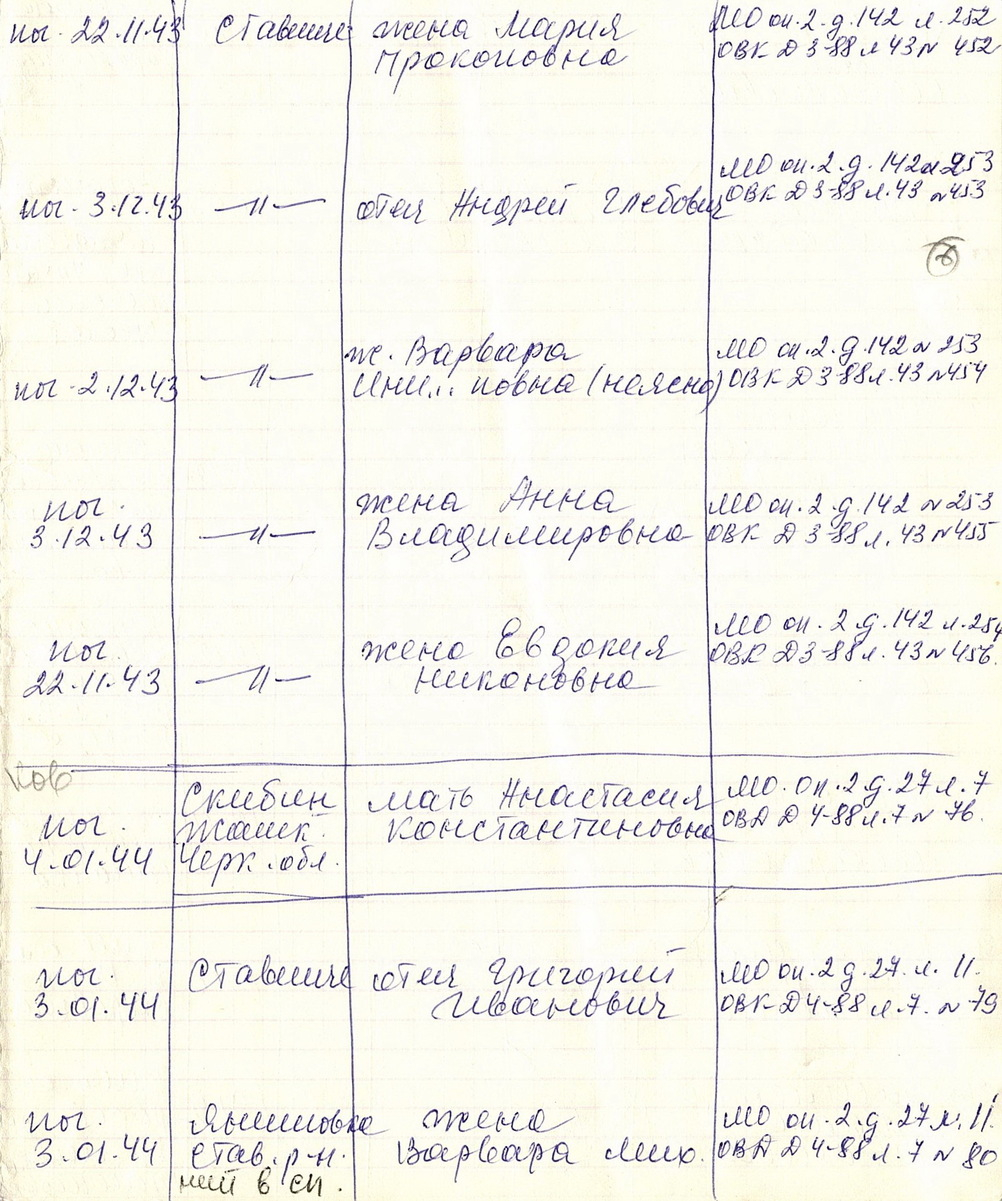 пог. 22.11.43 Ставище жена Мария МО оп.2.д.142 л.252
Прокоповна ОВК Д 3-88 л 43 N 452
МО оп.2.д.142 л 253
пог. 3.12.43 —"— отец Андрей Глебович ОВК Д 3-88 л.43 N 453
ж. Варвара МО оп.2.д.142 л 253
пог. 2.12.43 —"— Ини... повна (неясно) ОВК Д 3-88 л.43 N 454
пог. жена Анна МО оп.2 д.142 л 253
3.12.43 —"— Владимировна ОВК Д 3-88 л.43 N 455
пог. жена Евдокия МО оп.2.д.142 л.254
22.11.43 —"— Никоновна ОВК Д 3-88 л.43 N 456.
ков
Скибин мать Анастасия МО.оп.2 д.27 л.7
пог. Жашк. Константиновна ОВА Д 4-88 л.7 N 76.
4.01.44 Черк.обл.
пог. Ставище отец Григорий МО оп.2 д.27.л.11.
3.01.44 Иванович ОВК Д 4-88 л.7. N 79
пог. Янишовка жена МО оп.2.д.27 л.11.
3.01.44 Став.р-н. Варвара Мих. ОВА Д 4-88 л.7 N 80
в сп.